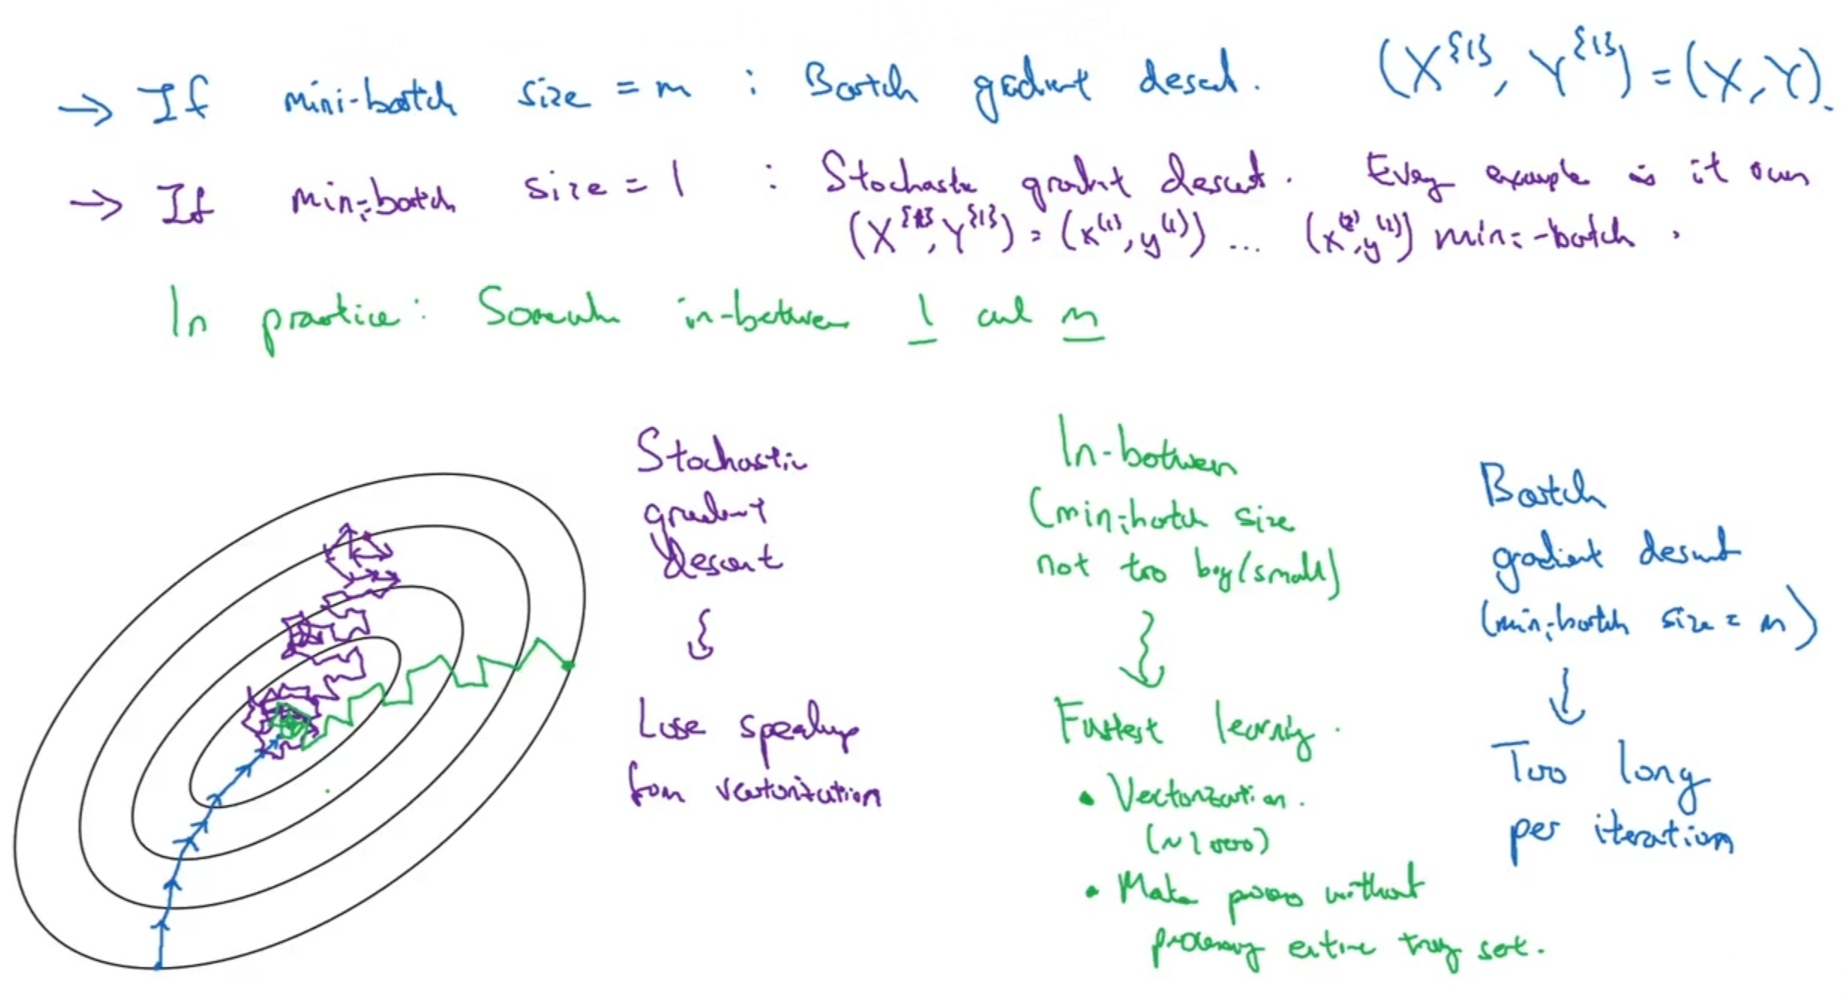 → If mini-batch size = m : Batch gradient descent. (X^{1}, Y^{1}) = (X, Y).
→ If mini-batch size = 1 : Stochastic gradient descent. Every example is it own
(X^{1}, Y^{1}) = (x^(1), y^(1)) ... (x^(2), y^(2)) mini-batch.
In practice: Somewhere in-between 1 and m
Stochastic
gradient
descent
↓
Lose speedup
from vectorization
In-between
(mini-batch size
not too big/small)
↓
Fastest learning.
• Vectorization.
(~1000)
• Make progress without
processing entire training set.
Batch
gradient descent
(mini-batch size = m)
↓
Too long
per iteration